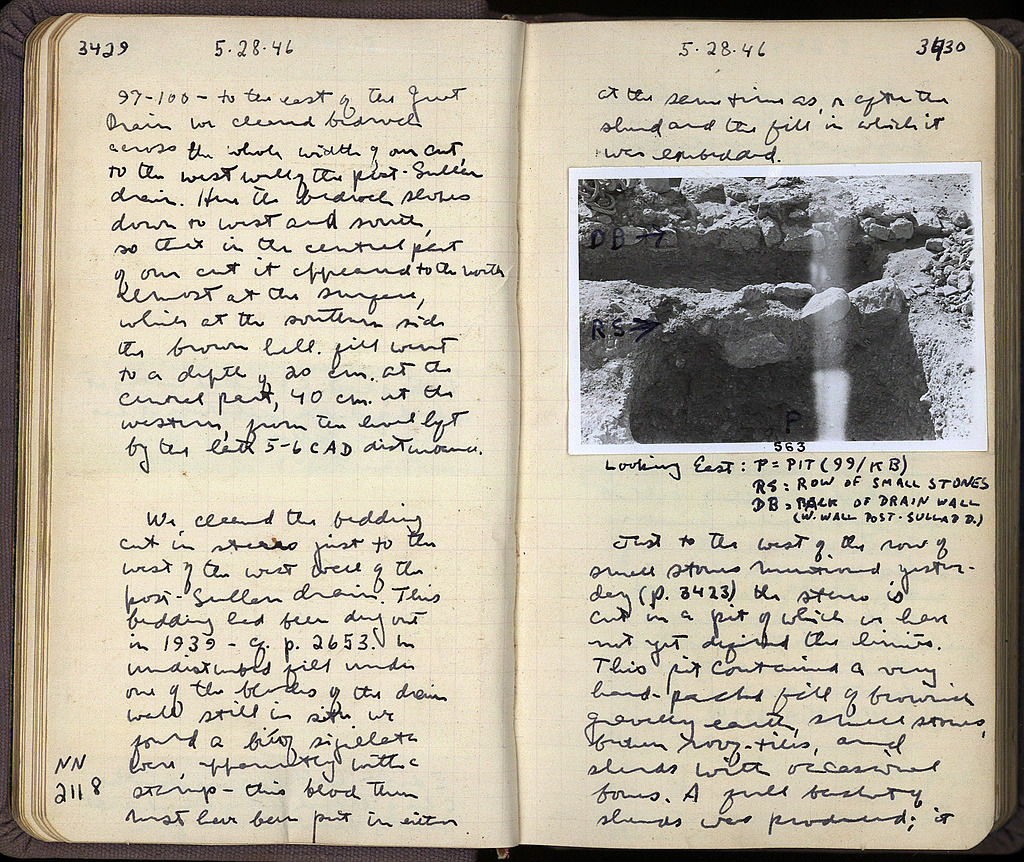 3429 5·28·46
97-100 - to the east of the Great
Drain we cleared bedrock
across the whole width of our cut,
to the west wall of the post-Sullan
drain. Here the bedrock slopes
down to west and south,
so that in the central part
of our cut it appeared to the north
almost at the surface,
while at the southern side
the brown hell. fill went
to a depth of 20 cm. at the
central part, 40 cm. at the
western, from the level left
by the late 5-6 C AD disturbance.
We cleared the bedding
cut in stereo just to the
west of the west wall of the
post-Sullan drain. This
bedding had been dug out
in 1939 - cf. p. 2653. In
undisturbed fill under
one of the blocks of the drain
wall still in situ we
found a bit of sigillata
ware, apparently with a
stamp - this block then
must have been put in either
NN
2118
5·28·46 3430
at the same time as, or after the
sherd and the fill in which it
was embedded.
DB →
RS →
P
563
Looking East: P = PIT (99/KB)
RS: ROW OF SMALL STONES
DB = BACK OF DRAIN WALL
(W. WALL POST-SULLAN D.)
Just to the west of the row of
small stones mentioned yester-
day (p. 3423) the stereo is
cut in a pit of which we have
not yet defined the limits.
This pit contained a very
hard-packed fill of brownish
gravelly earth, small stones,
broken roof-tiles, and
sherds with occasional
bones. A full basket of
sherds was produced; it